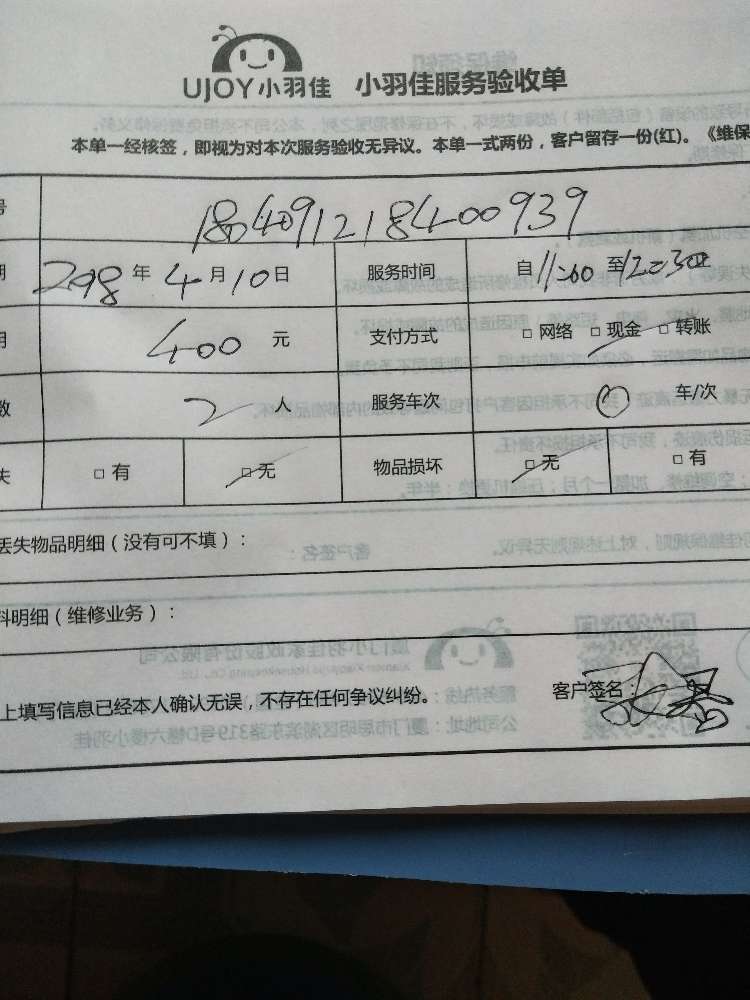 UJOY小羽佳 小羽佳服务验收单
本单一经核签，即视为对本次服务验收无异议。本单一式两份，客户留存一份(红)。《维保
号 1804091218400939
期 2018年4月10日 服务时间 自11:00至12:30
用 400元 支付方式 □网络 □现金 □转账
数 2人 服务车次 0车/次
失 □有 □无 物品损坏 □无 □有
丢失物品明细（没有可不填）：
料明细（维修业务）：
上填写信息已经本人确认无误，不存在任何争议纠纷。 客户签名：